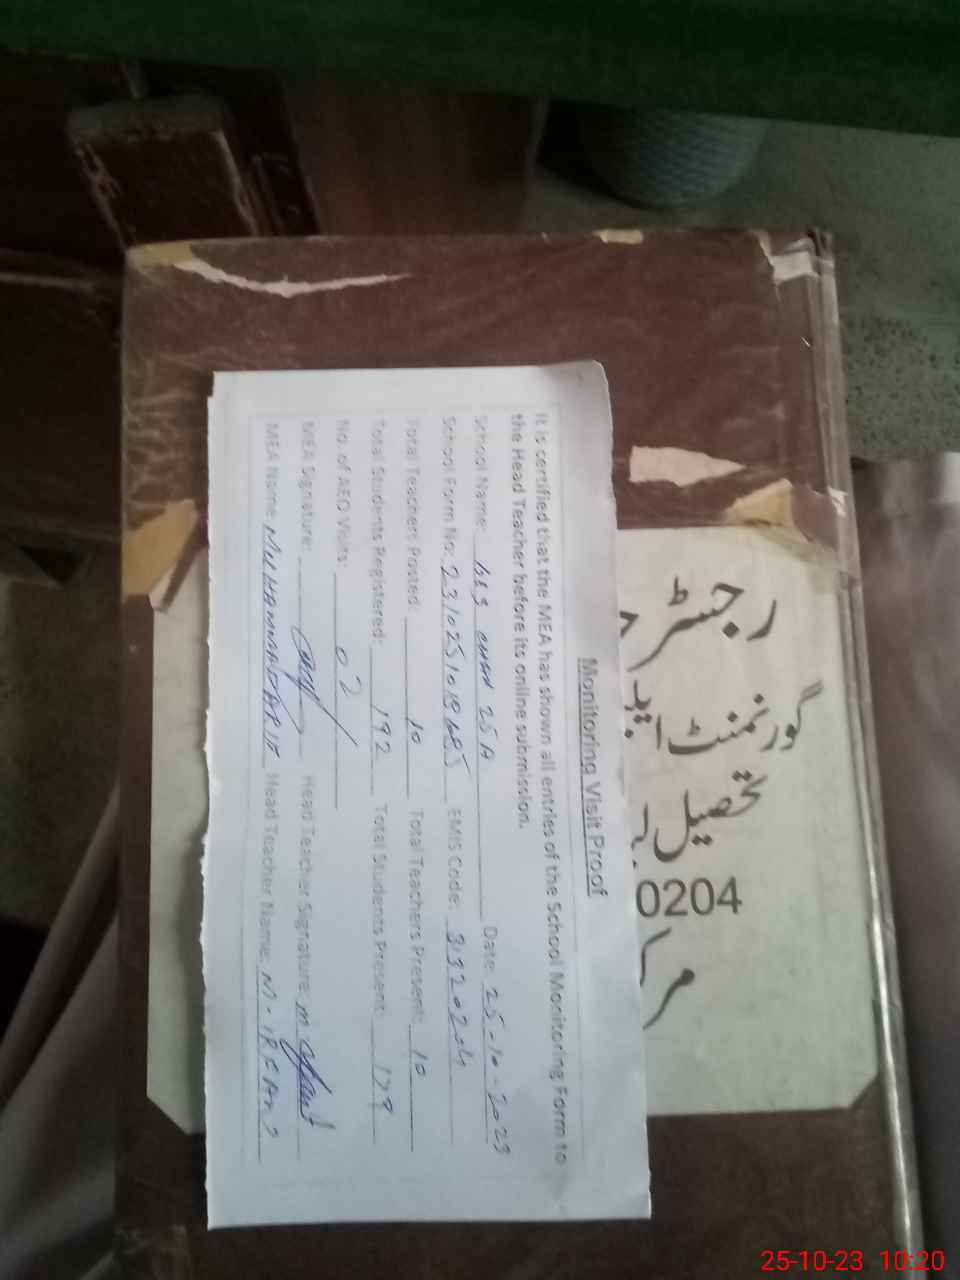 Monitoring Visit Proof
It is certified that the MEA has shown all entries of the School Monitoring Form to
the Head Teacher before its online submission.
School Name: 25 A Date: 25-10-2023
School Form No: EMIS Code:
Total Teachers Posted: 10 Total Teachers Present: 10
Total Students Registered: 192 Total Students Present:
No. of AEO Visits: 02
MEA Signature: Head Teacher Signature:
MEA Name: MUHAMMAD Head Teacher Name: M. IRFAN
رجسٹر
گورنمنٹ
تحصیل
0204
25-10-23 10:20